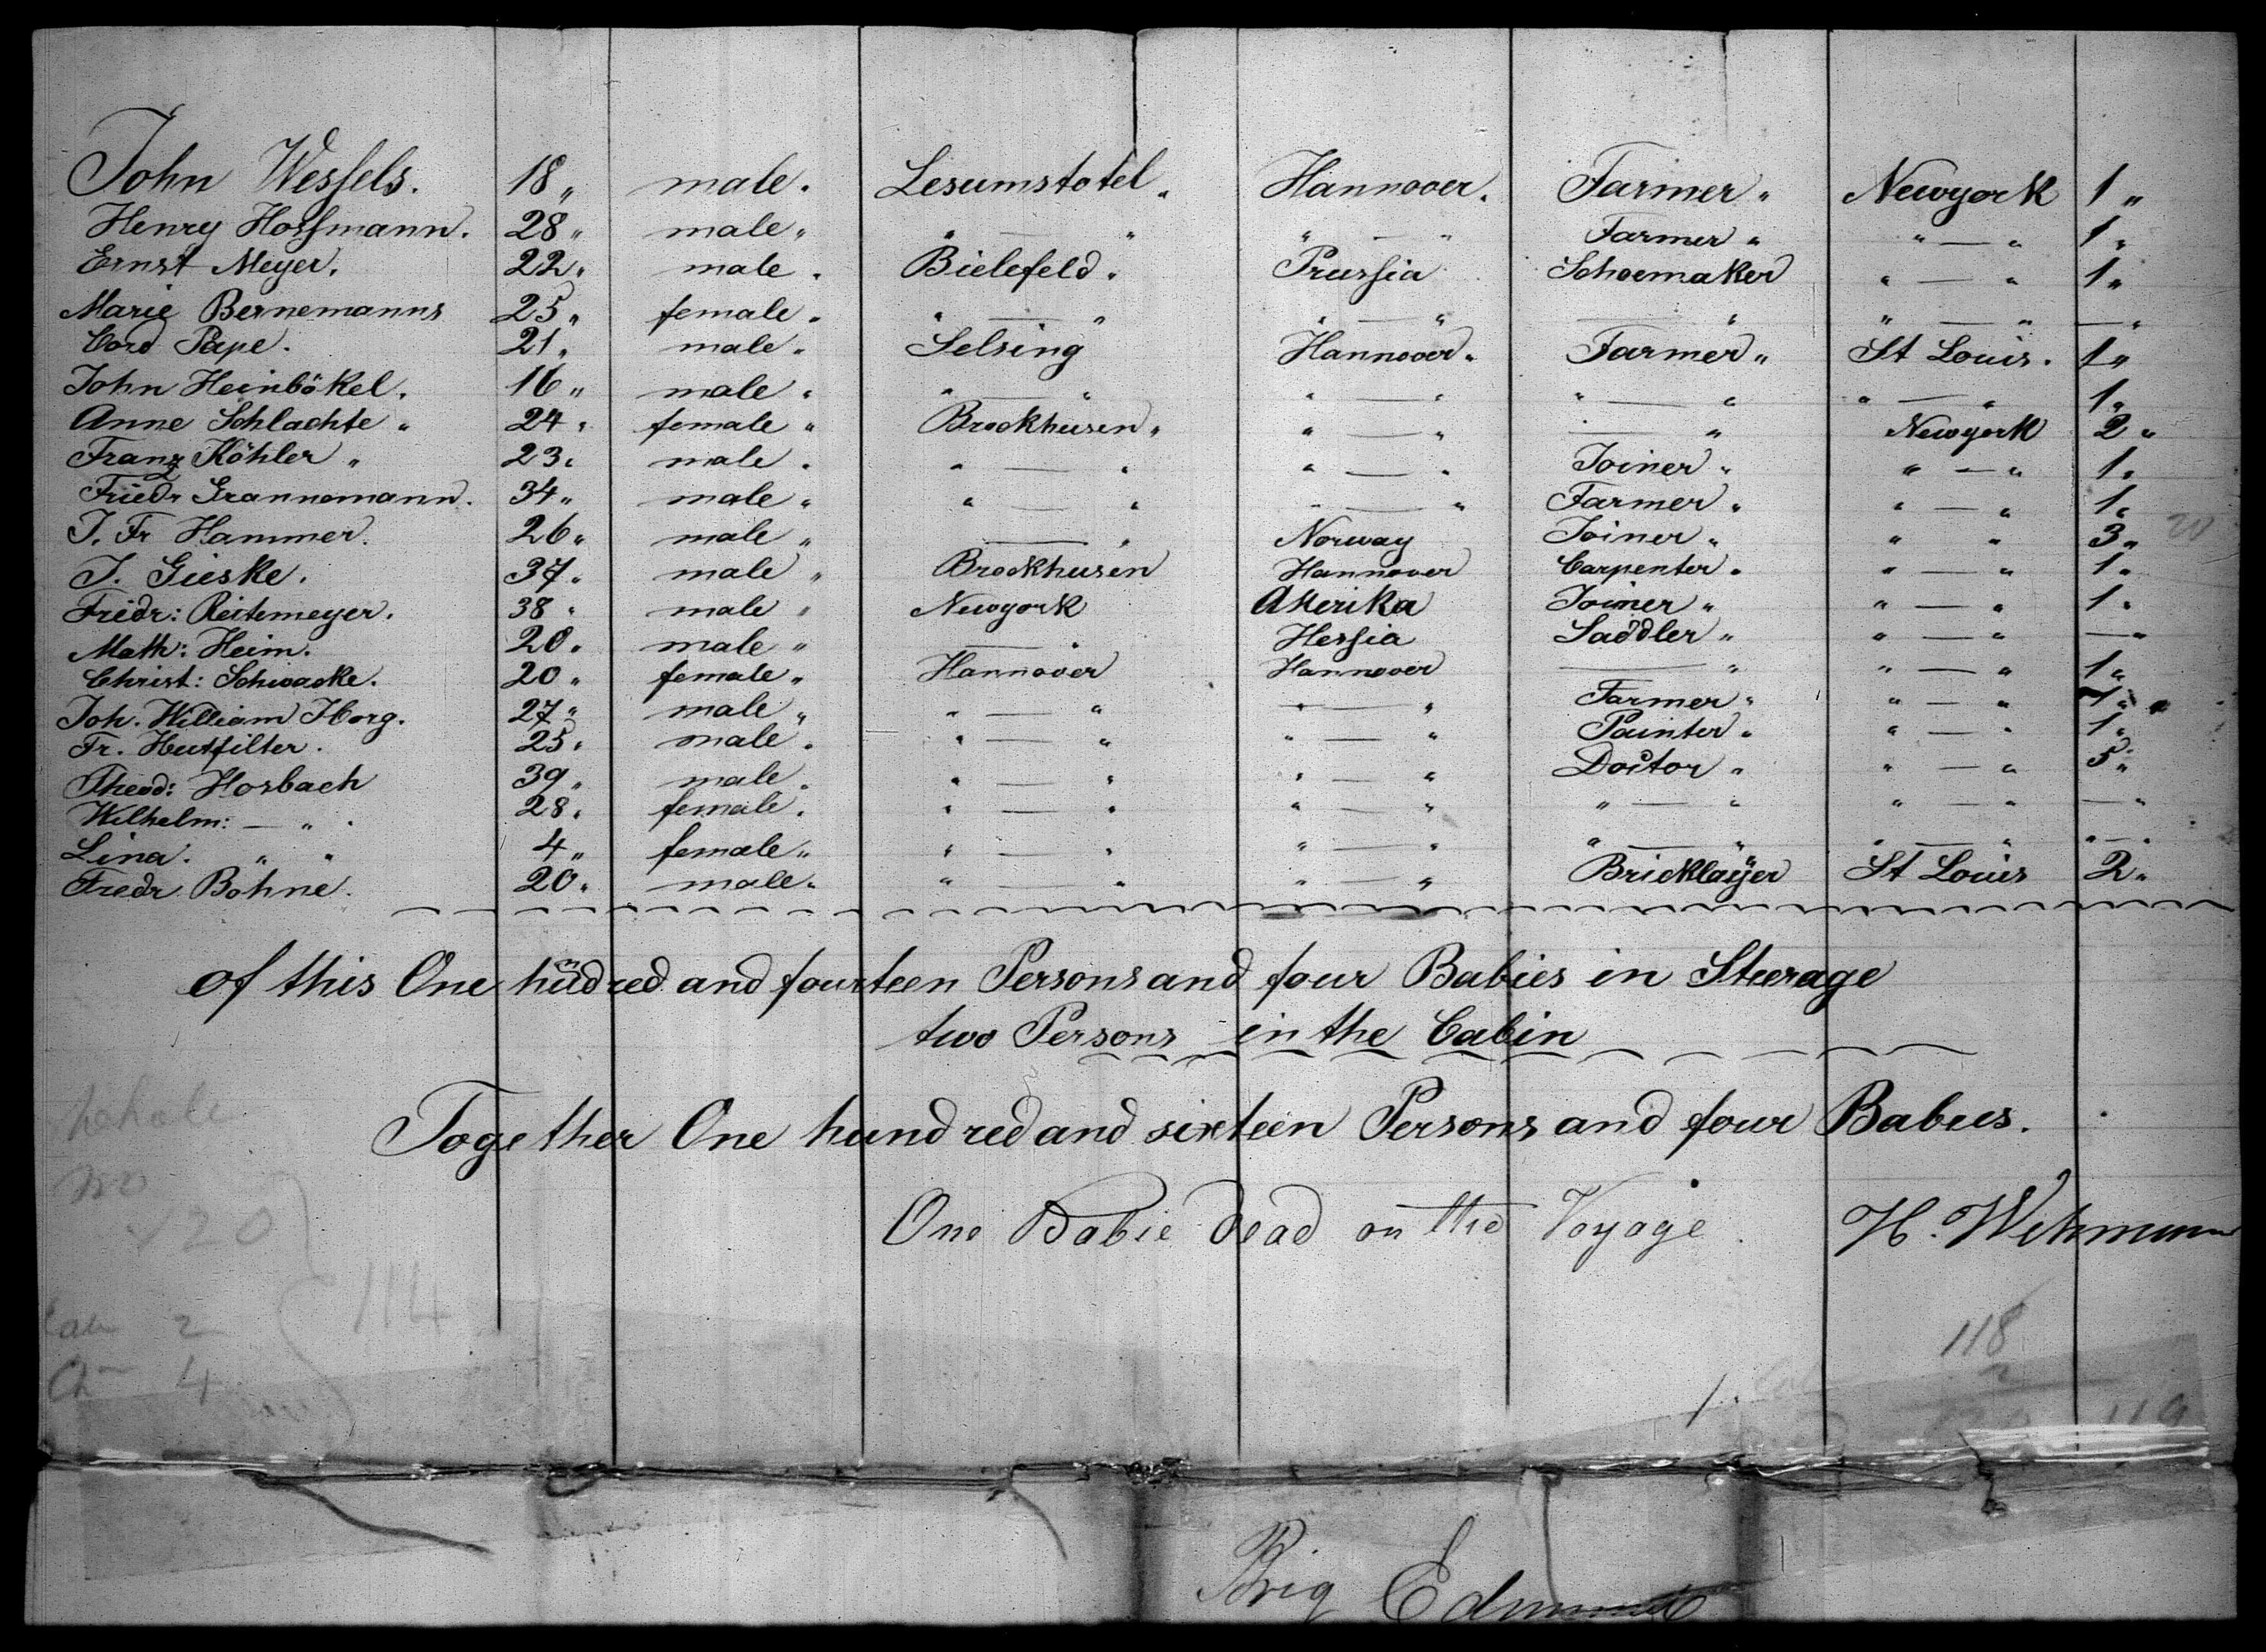 John Wessels. 18 " male. Lesumstotel. Hannover. Farmer " Newyork 1 "
Henry Hoffmann. 28 " male " " — " " — " Farmer " " — " 1 "
Ernst Meyer. 22 " male. Bielefeld. Prussia Schoemaker " — " 1 "
Marie Bernemanns 25 " female. " — " " — " — " " — " — "
Cord Pape. 21 " male " Selsing Hannover. Farmer " St Louis. 1 "
John Heinbökel. 16 " male " " — " " — " " — " " — " 1 "
Anne Schlachte " 24 " female " Brockhusen " " — " — " Newyork 2 "
Franz Köhler " 23 " male. " — " " — " Joiner " " — " 1 "
Friedr Grannemann. 34 " male " " — " " — " Farmer " " — " 1 "
J. Fr Hammer. 26 " male " — " Norway Joiner " " " 3 " 20
J. Gieske. 37 " male " Brockhusen Hannover Carpenter " " — " 1 "
Friedr: Reitemeyer. 38 " male " Newyork Amerika Joiner " " — " 1 "
Math: Heim. 20 " male " — " Hessia Saddler " " — " — "
Christ: Schwacke. 20 " female " Hannover Hannover — " " — " 1 "
Joh. William Horg. 27 " male " " — " " — " Farmer " " — " 1 "
Fr. Hutfilter. 25 " male. " — " " — " Painter " " — " 1 "
Theod: Horbach 39 " male. " — " " — " Doctor " " — " 5 "
Wilhelm: — " . 28 " female. " — " " — " " — " " — " — "
Lina. " " 4 " female " " — " " — " " — " " — " " — "
Fredr Bohne. 20 " male. " — " " — " Bricklayer St Louis 2 "
of this One hundred and fourteen Persons and four Babies in Steerage
two Persons in the Cabin
Together One hundred and sixteen Persons and four Babies.
One Babie dead on the Voyage. H. Wehmann
120
114
2
4
118
2
119
Brig Edmund